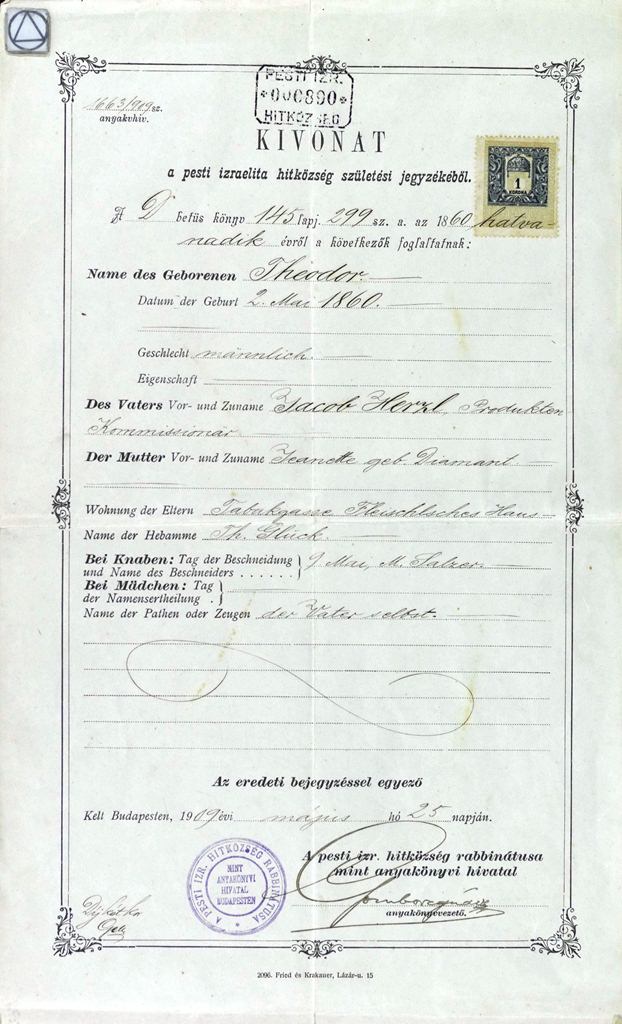 1663/909 sz.
anyakvhiv.
PESTI IZR.
*000890*
HITKÖZSÉG
KIVONAT
a pesti izraelita hitközség születési jegyzékéből.
1
KORONA
A D betüs könyv 145 lapj. 299 sz. a. az 1860 hatva-
nadik évről a következők foglaltatnak:
Name des Geborenen Theodor.
Datum der Geburt 2. Mai 1860.
Geschlecht männlich.
Eigenschaft
Des Vaters Vor- und Zuname Jacob Herzl, Produkten
Kommissionär
Der Mutter Vor- und Zuname Jeanette geb. Diamant
Wohnung der Eltern Tabakgasse Fleischlsches Haus
Name der Hebamme Th. Glück.
Bei Knaben: Tag der Beschneidung
und Name des Beschneiders . . . . . . 9 Mai, M. Salzer.
Bei Mädchen: Tag
der Namensertheilung .
Name der Pathen oder Zeugen der Vater selbst.
Az eredeti bejegyzéssel egyező
Kelt Budapesten, 1909 évi május hó 25 napján.
A pesti izr. hitközség rabbinátusa
mint anyakönyvi hivatal
anyakönyvvezető.
A PESTI IZR. HITKÖZSÉG RABBINÁTUSA
MINT
ANYAKÖNYVI
HIVATAL
BUDAPESTEN
2096. Fried és Krakauer, Lázár-u. 15